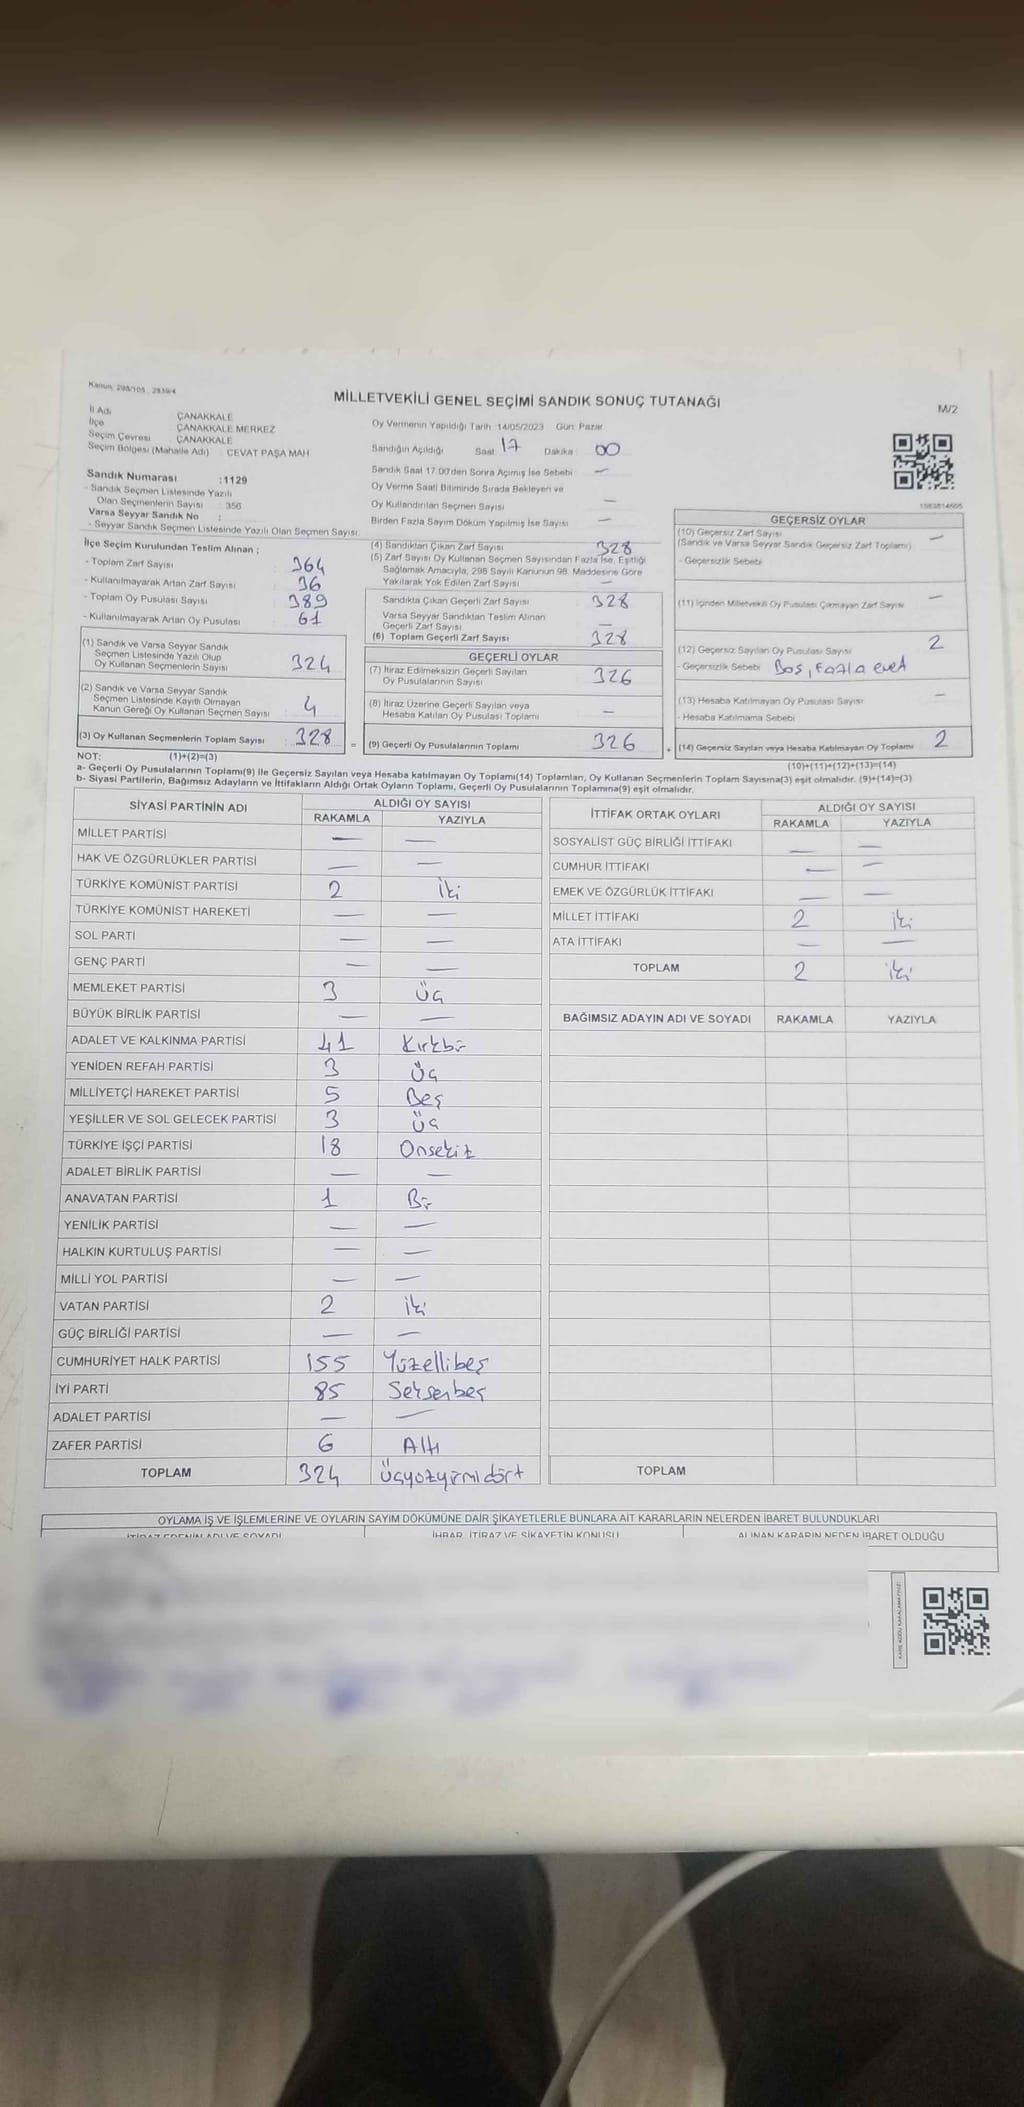 Kanun: 298/105 , 2839/4
MİLLETVEKİLİ GENEL SEÇİMİ SANDIK SONUÇ TUTANAĞI
M/2
İl Adı ÇANAKKALE
İlçe ÇANAKKALE MERKEZ
Seçim Çevresi : ÇANAKKALE
Seçim Bölgesi (Mahalle Adı) : CEVAT PAŞA MAH.
Sandık Numarası :1129
- Sandık Seçmen Listesinde Yazılı
Olan Seçmenlerin Sayısı : 356
Varsa Seyyar Sandık No :
- Seyyar Sandık Seçmen Listesinde Yazılı Olan Seçmen Sayısı:
Oy Vermenin Yapıldığı Tarih: 14/05/2023 Gün: Pazar
Sandığın Açıldığı Saat 17 Dakika : 00
Sandık Saat 17:00'den Sonra Açımış İse Sebebi : —
Oy Verme Saati Bitiminde Sırada Bekleyen ve
Oy Kullandırılan Seçmen Sayısı —
Birden Fazla Sayım Döküm Yapılmış İse Sayısı : —
1583814605
İlçe Seçim Kurulundan Teslim Alınan ;
- Toplam Zarf Sayısı : 364
- Kullanılmayarak Artan Zarf Sayısı : 36
- Toplam Oy Pusulası Sayısı : 389
- Kullanılmayarak Artan Oy Pusulası : 61
(1) Sandık ve Varsa Seyyar Sandık
Seçmen Listesinde Yazılı Olup
Oy Kullanan Seçmenlerin Sayısı : 324
(2) Sandık ve Varsa Seyyar Sandık
Seçmen Listesinde Kayıtlı Olmayan
Kanun Gereği Oy Kullanan Seçmen Sayısı : 4
(3) Oy Kullanan Seçmenlerin Toplam Sayısı : 328
(4) Sandıktan Çıkan Zarf Sayısı 328
(5) Zarf Sayısı Oy Kullanan Seçmen Sayısından Fazla İse, Eşitliği
Sağlamak Amacıyla, 298 Sayılı Kanunun 98. Maddesine Göre
Yakılarak Yok Edilen Zarf Sayısı —
Sandıkta Çıkan Geçerli Zarf Sayısı 328
Varsa Seyyar Sandıktan Teslim Alınan
Geçerli Zarf Sayısı —
(6) Toplam Geçerli Zarf Sayısı 328
GEÇERLİ OYLAR
(7) İtiraz Edilmeksizin Geçerli Sayılan
Oy Pusulalarının Sayısı 326
(8) İtiraz Üzerine Geçerli Sayılan veya
Hesaba Katılan Oy Pusulası Toplamı —
= (9) Geçerli Oy Pusulalarının Toplamı 326 +
GEÇERSİZ OYLAR
(10) Geçersiz Zarf Sayısı
(Sandık ve Varsa Seyyar Sandık Geçersiz Zarf Toplamı) —
- Geçersizlik Sebebi
(11) İçinden Milletvekili Oy Pusulası Çıkmayan Zarf Sayısı —
(12) Geçersiz Sayılan Oy Pusulası Sayısı 2
- Geçersizlik Sebebi Boş, Fazla evet
(13) Hesaba Katılmayan Oy Pusulası Sayısı —
- Hesaba Katılmama Sebebi
(14) Geçersiz Sayılan veya Hesaba Katılmayan Oy Toplamı 2
NOT: (1)+(2)=(3)
(10)+(11)+(12)+(13)=(14)
a- Geçerli Oy Pusulalarının Toplamı(9) ile Geçersiz Sayılan veya Hesaba katılmayan Oy Toplamı(14) Toplamları, Oy Kullanan Seçmenlerin Toplam Sayısına(3) eşit olmalıdır. (9)+(14)=(3)
b- Siyasi Partilerin, Bağımsız Adayların ve İttifakların Aldığı Ortak Oyların Toplamı, Geçerli Oy Pusulalarının Toplamına(9) eşit olmalıdır.
SİYASİ PARTİNİN ADI ALDIĞI OY SAYISI
RAKAMLA YAZIYLA
MİLLET PARTİSİ — —
HAK VE ÖZGÜRLÜKLER PARTİSİ — —
TÜRKİYE KOMÜNİST PARTİSİ 2 İki
TÜRKİYE KOMÜNİST HAREKETİ — —
SOL PARTİ — —
GENÇ PARTİ — —
MEMLEKET PARTİSİ 3 Üç
BÜYÜK BİRLİK PARTİSİ — —
ADALET VE KALKINMA PARTİSİ 41 Kırkbir
YENİDEN REFAH PARTİSİ 3 Üç
MİLLİYETÇİ HAREKET PARTİSİ 5 Beş
YEŞİLLER VE SOL GELECEK PARTİSİ 3 Üç
TÜRKİYE İŞÇİ PARTİSİ 18 Onsekiz
ADALET BİRLİK PARTİSİ — —
ANAVATAN PARTİSİ 1 Bir
YENİLİK PARTİSİ — —
HALKIN KURTULUŞ PARTİSİ — —
MİLLİ YOL PARTİSİ — —
VATAN PARTİSİ 2 İki
GÜÇ BİRLİĞİ PARTİSİ — —
CUMHURİYET HALK PARTİSİ 155 Yüzellibeş
İYİ PARTİ 85 Seksenbeş
ADALET PARTİSİ — —
ZAFER PARTİSİ 6 Altı
TOPLAM 324 Üçyüzyirmidört
İTTİFAK ORTAK OYLARI ALDIĞI OY SAYISI
RAKAMLA YAZIYLA
SOSYALİST GÜÇ BİRLİĞİ İTTİFAKI — —
CUMHUR İTTİFAKI — —
EMEK VE ÖZGÜRLÜK İTTİFAKI — —
MİLLET İTTİFAKI 2 iki
ATA İTTİFAKI — —
TOPLAM 2 iki
BAĞIMSIZ ADAYIN ADI VE SOYADI RAKAMLA YAZIYLA
TOPLAM
OYLAMA İŞ VE İŞLEMLERİNE VE OYLARIN SAYIM DÖKÜMÜNE DAİR ŞİKAYETLERLE BUNLARA AİT KARARLARIN NELERDEN İBARET BULUNDUKLARI
İTİRAZ EDENİN ADI VE SOYADI İHBAR, İTİRAZ VE ŞİKAYETİN KONUSU ALINAN KARARIN NEDEN İBARET OLDUĞU